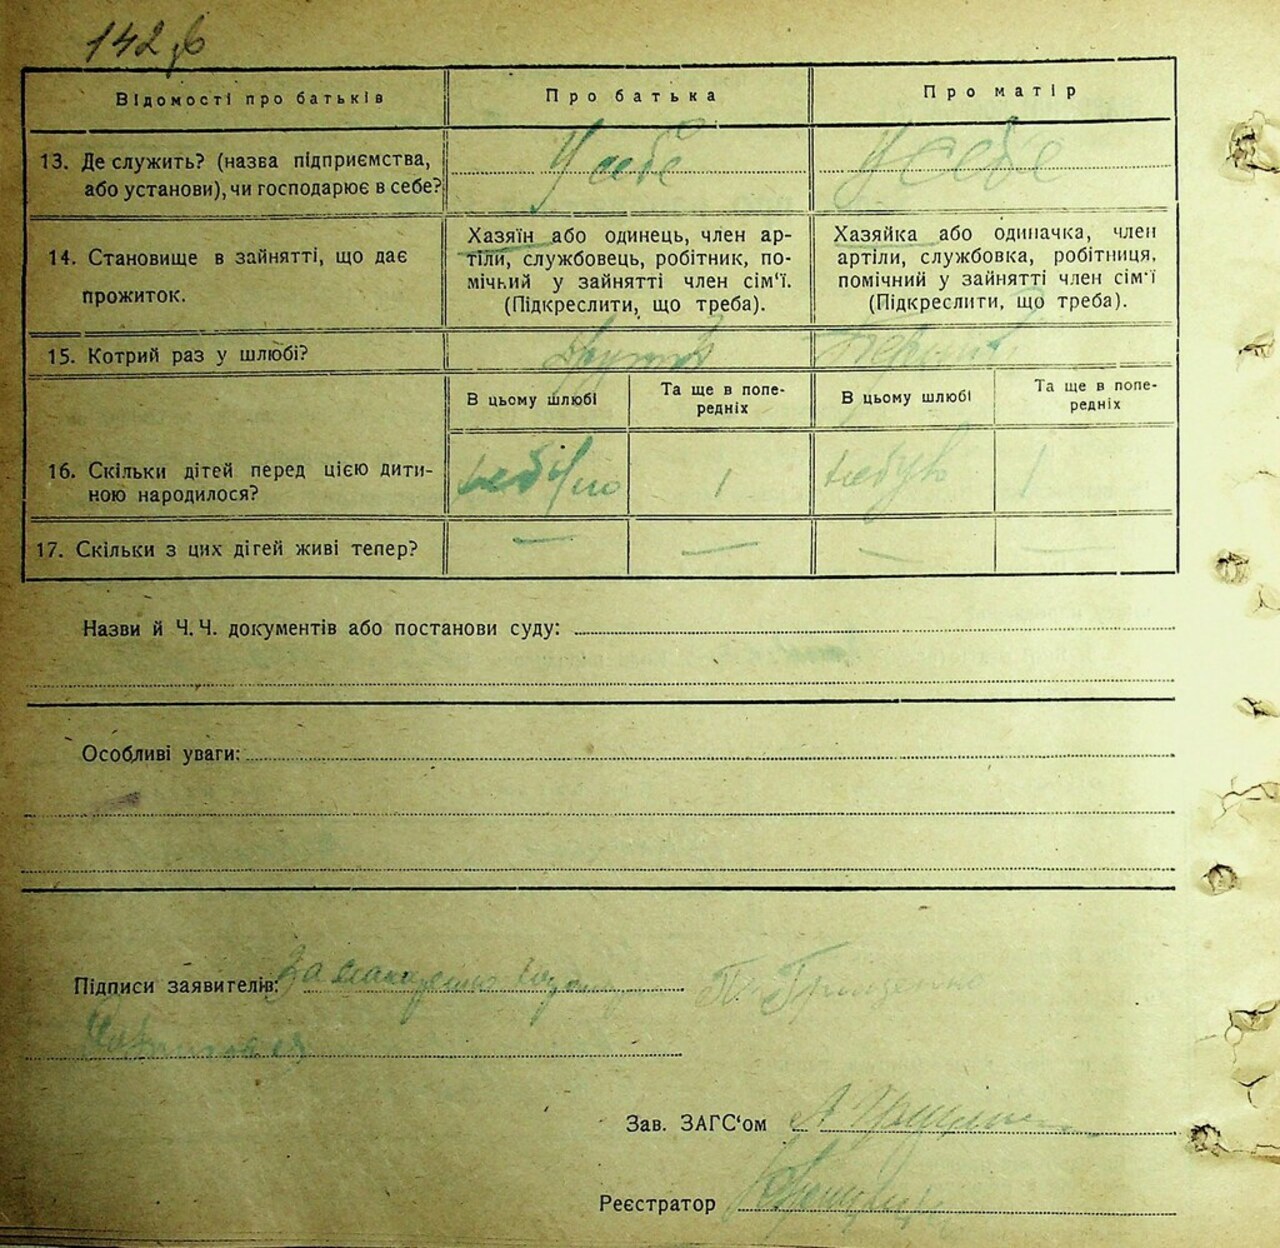 142 зв
Відомості про батьків
Про батька
Про матір
13. Де служить? (назва підприємства,
або установи), чи господарює в себе?
У себе
У себе
14. Становище в зайнятті, що дає
прожиток.
Хазяїн або одинець, член ар-
тіли, службовець, робітник, по-
мічний у зайнятті член сім'ї.
(Підкреслити, що треба).
Хазяйка або одиначка, член
артіли, службовка, робітниця,
помічний у зайнятті член сім'ї
(Підкреслити, що треба).
15. Котрий раз у шлюбі?
В цьому шлюбі
Та ще в попе-
редніх
В цьому шлюбі
Та ще в попе-
редніх
16. Скільки дітей перед цією дити-
ною народилося?
1
1
17. Скільки з цих дітей живі тепер?
— — — —
Назви й Ч. Ч. документів або постанови суду:
Особливі уваги:
Підписи заявителів: За П. Грищенко
Зав. ЗАГС'ом
Реєстратор